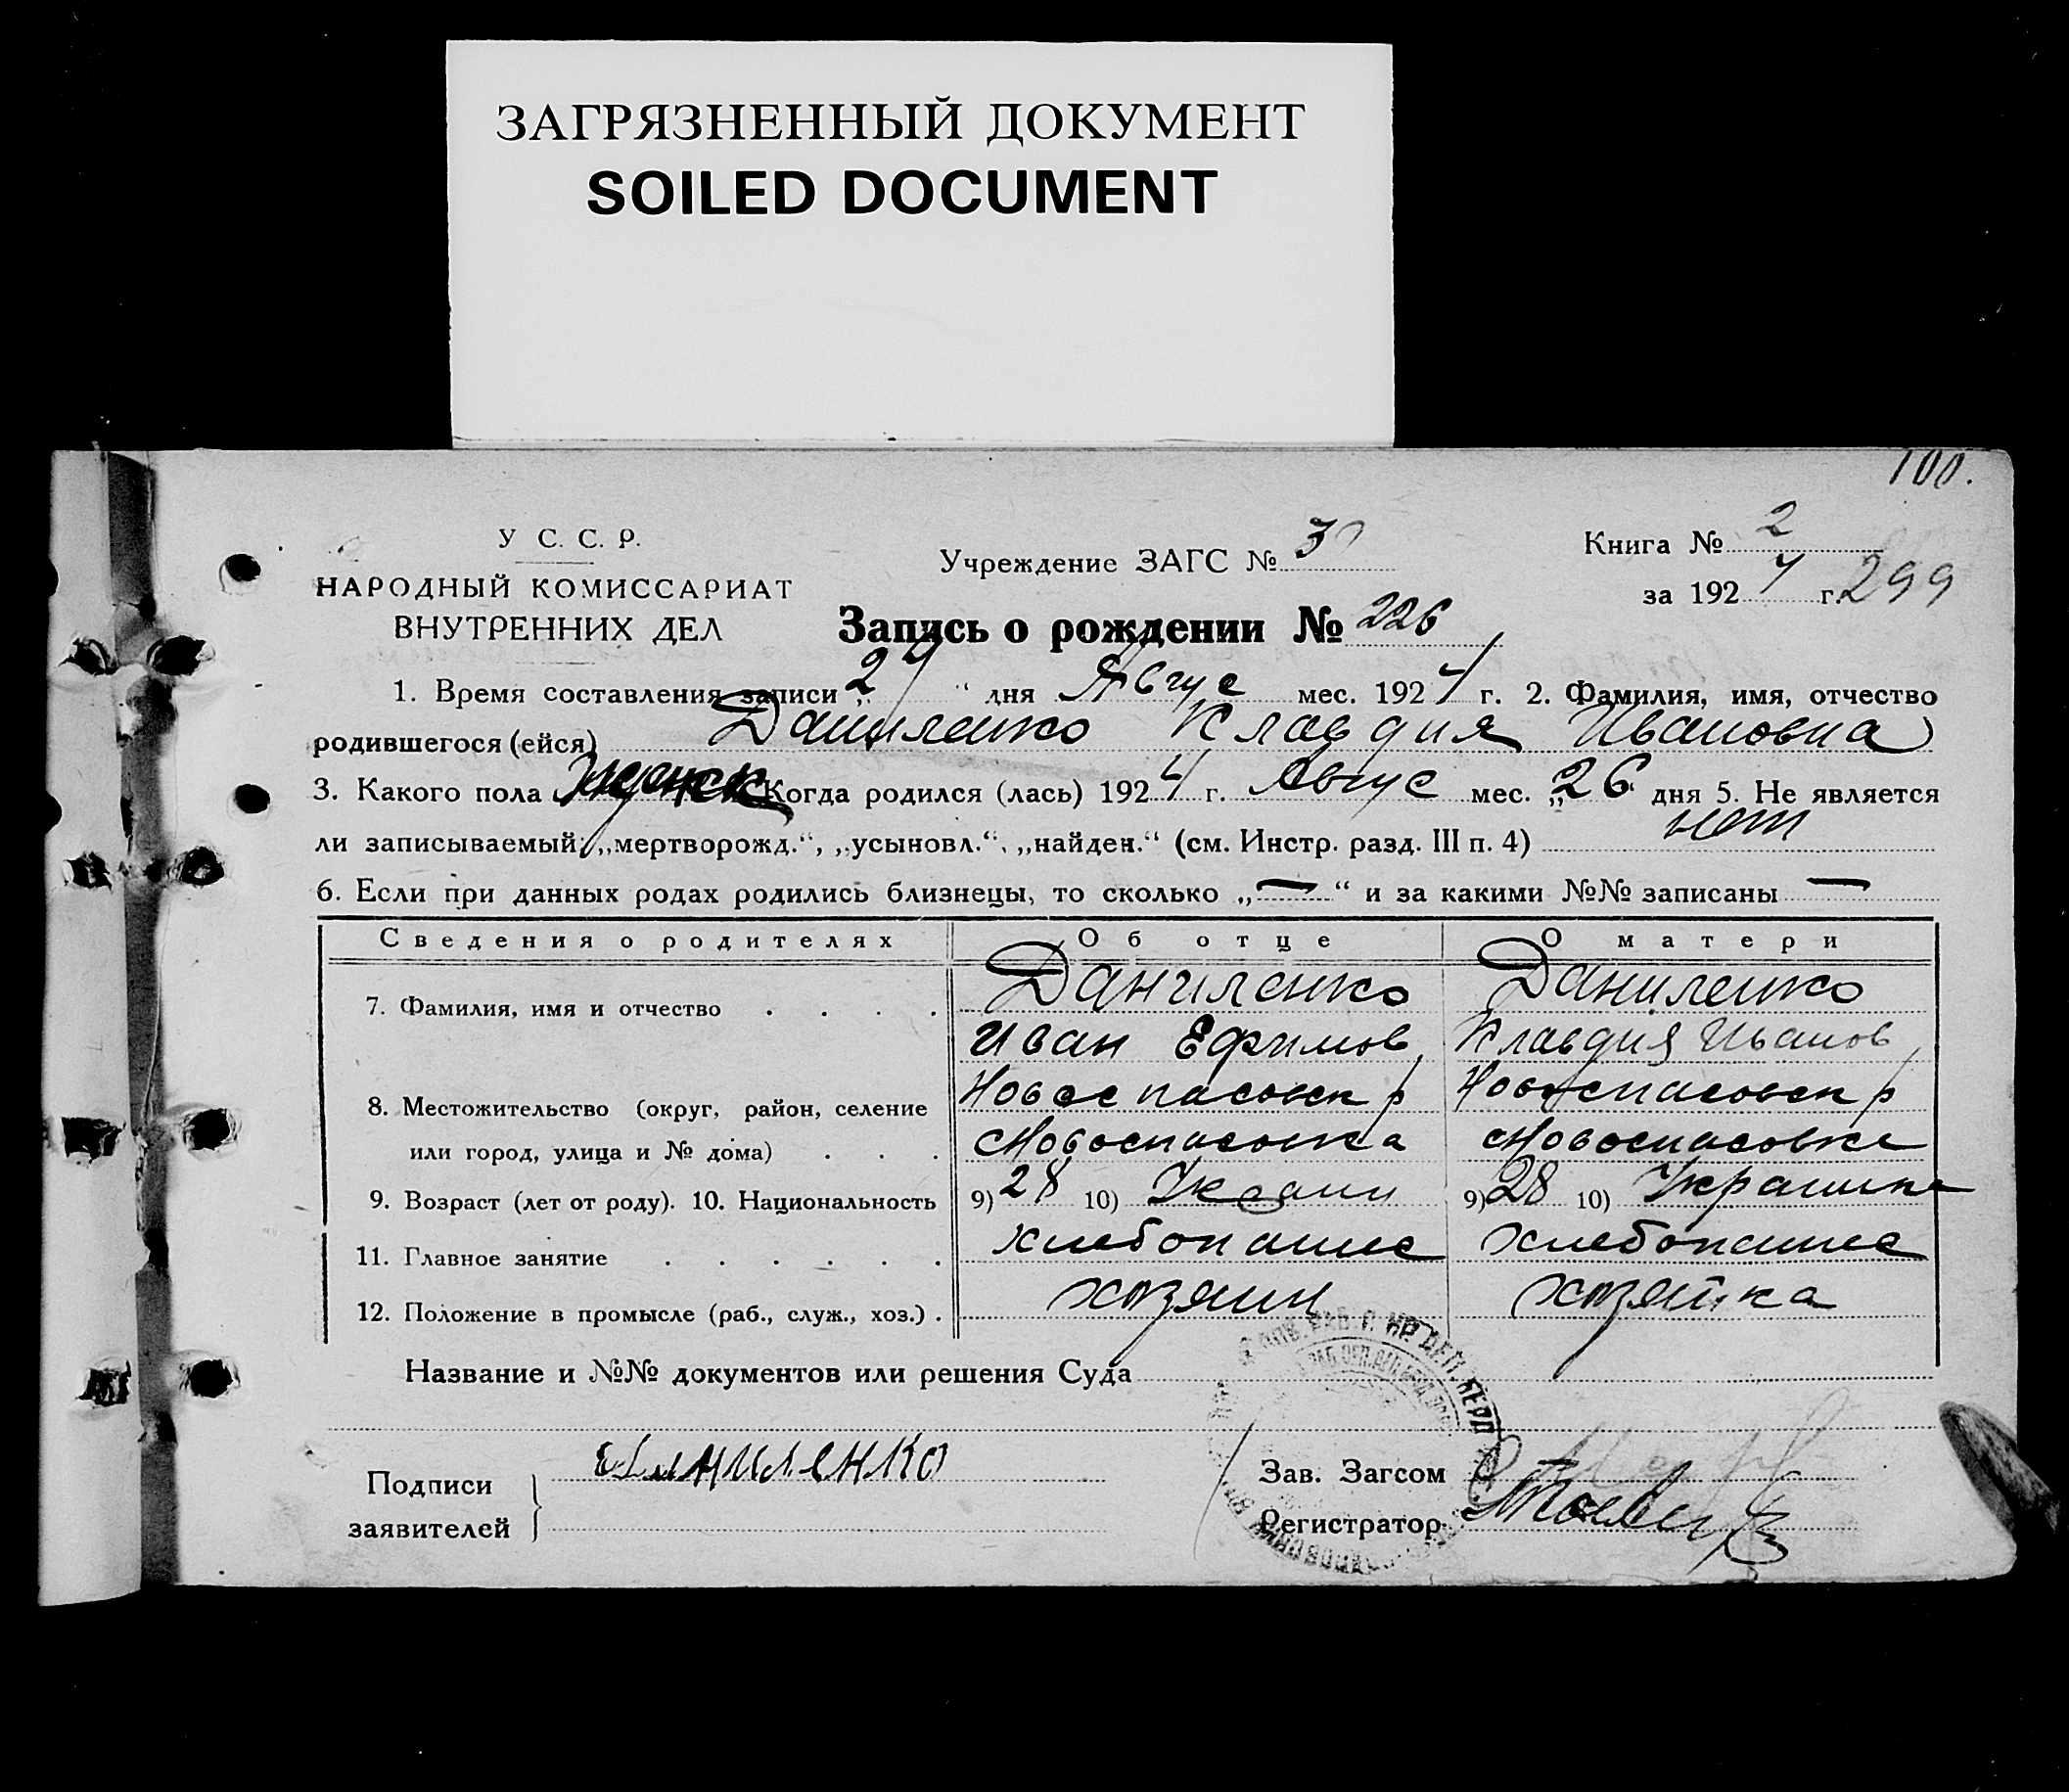 ЗАГРЯЗНЕННЫЙ ДОКУМЕНТ
SOILED DOCUMENT
100.
У С. С. Р.
НАРОДНЫЙ КОМИССАРИАТ
ВНУТРЕННИХ ДЕЛ
Учреждение ЗАГС №
Книга № 2
за 192 4 г. 299
Запись о рождении № 226
1. Время составления записи „27“ дня Авгус мес. 1924 г. 2. Фамилия, имя, отчество
родившегося (ейся) Даниленко Клавдия Ивановна
3. Какого пола женск Когда родился (лась) 1924 г. Авгус мес. „26“ дня 5. Не является
ли записываемый: „мертворожд.“, „усыновл.“, „найден.“ (см. Инстр. разд. III п. 4) нет
6. Если при данных родах родились близнецы, то сколько „—“ и за какими №№ записаны —
Сведения о родителях Об отце О матери
7. Фамилия, имя и отчество . . . . Даниленко Даниленко
Иван Ефимов Клавдия Иванов
8. Местожительство (округ, район, селение Новоспасовск р Новоспасовск р
или город, улица и № дома) . . . Новоспасовка Новоспасовка
9. Возраст (лет от роду). 10. Национальность 9) 28 10) Украин 9) 28 10) Украинка
11. Главное занятие . . . . . . хлебопашес хлебопашес
12. Положение в промысле (раб., служ., хоз.) . хозяин хозяйка
Название и №№ документов или решения Суда
Подписи
заявителей
Даниленко
Зав. Загсом
Регистратор